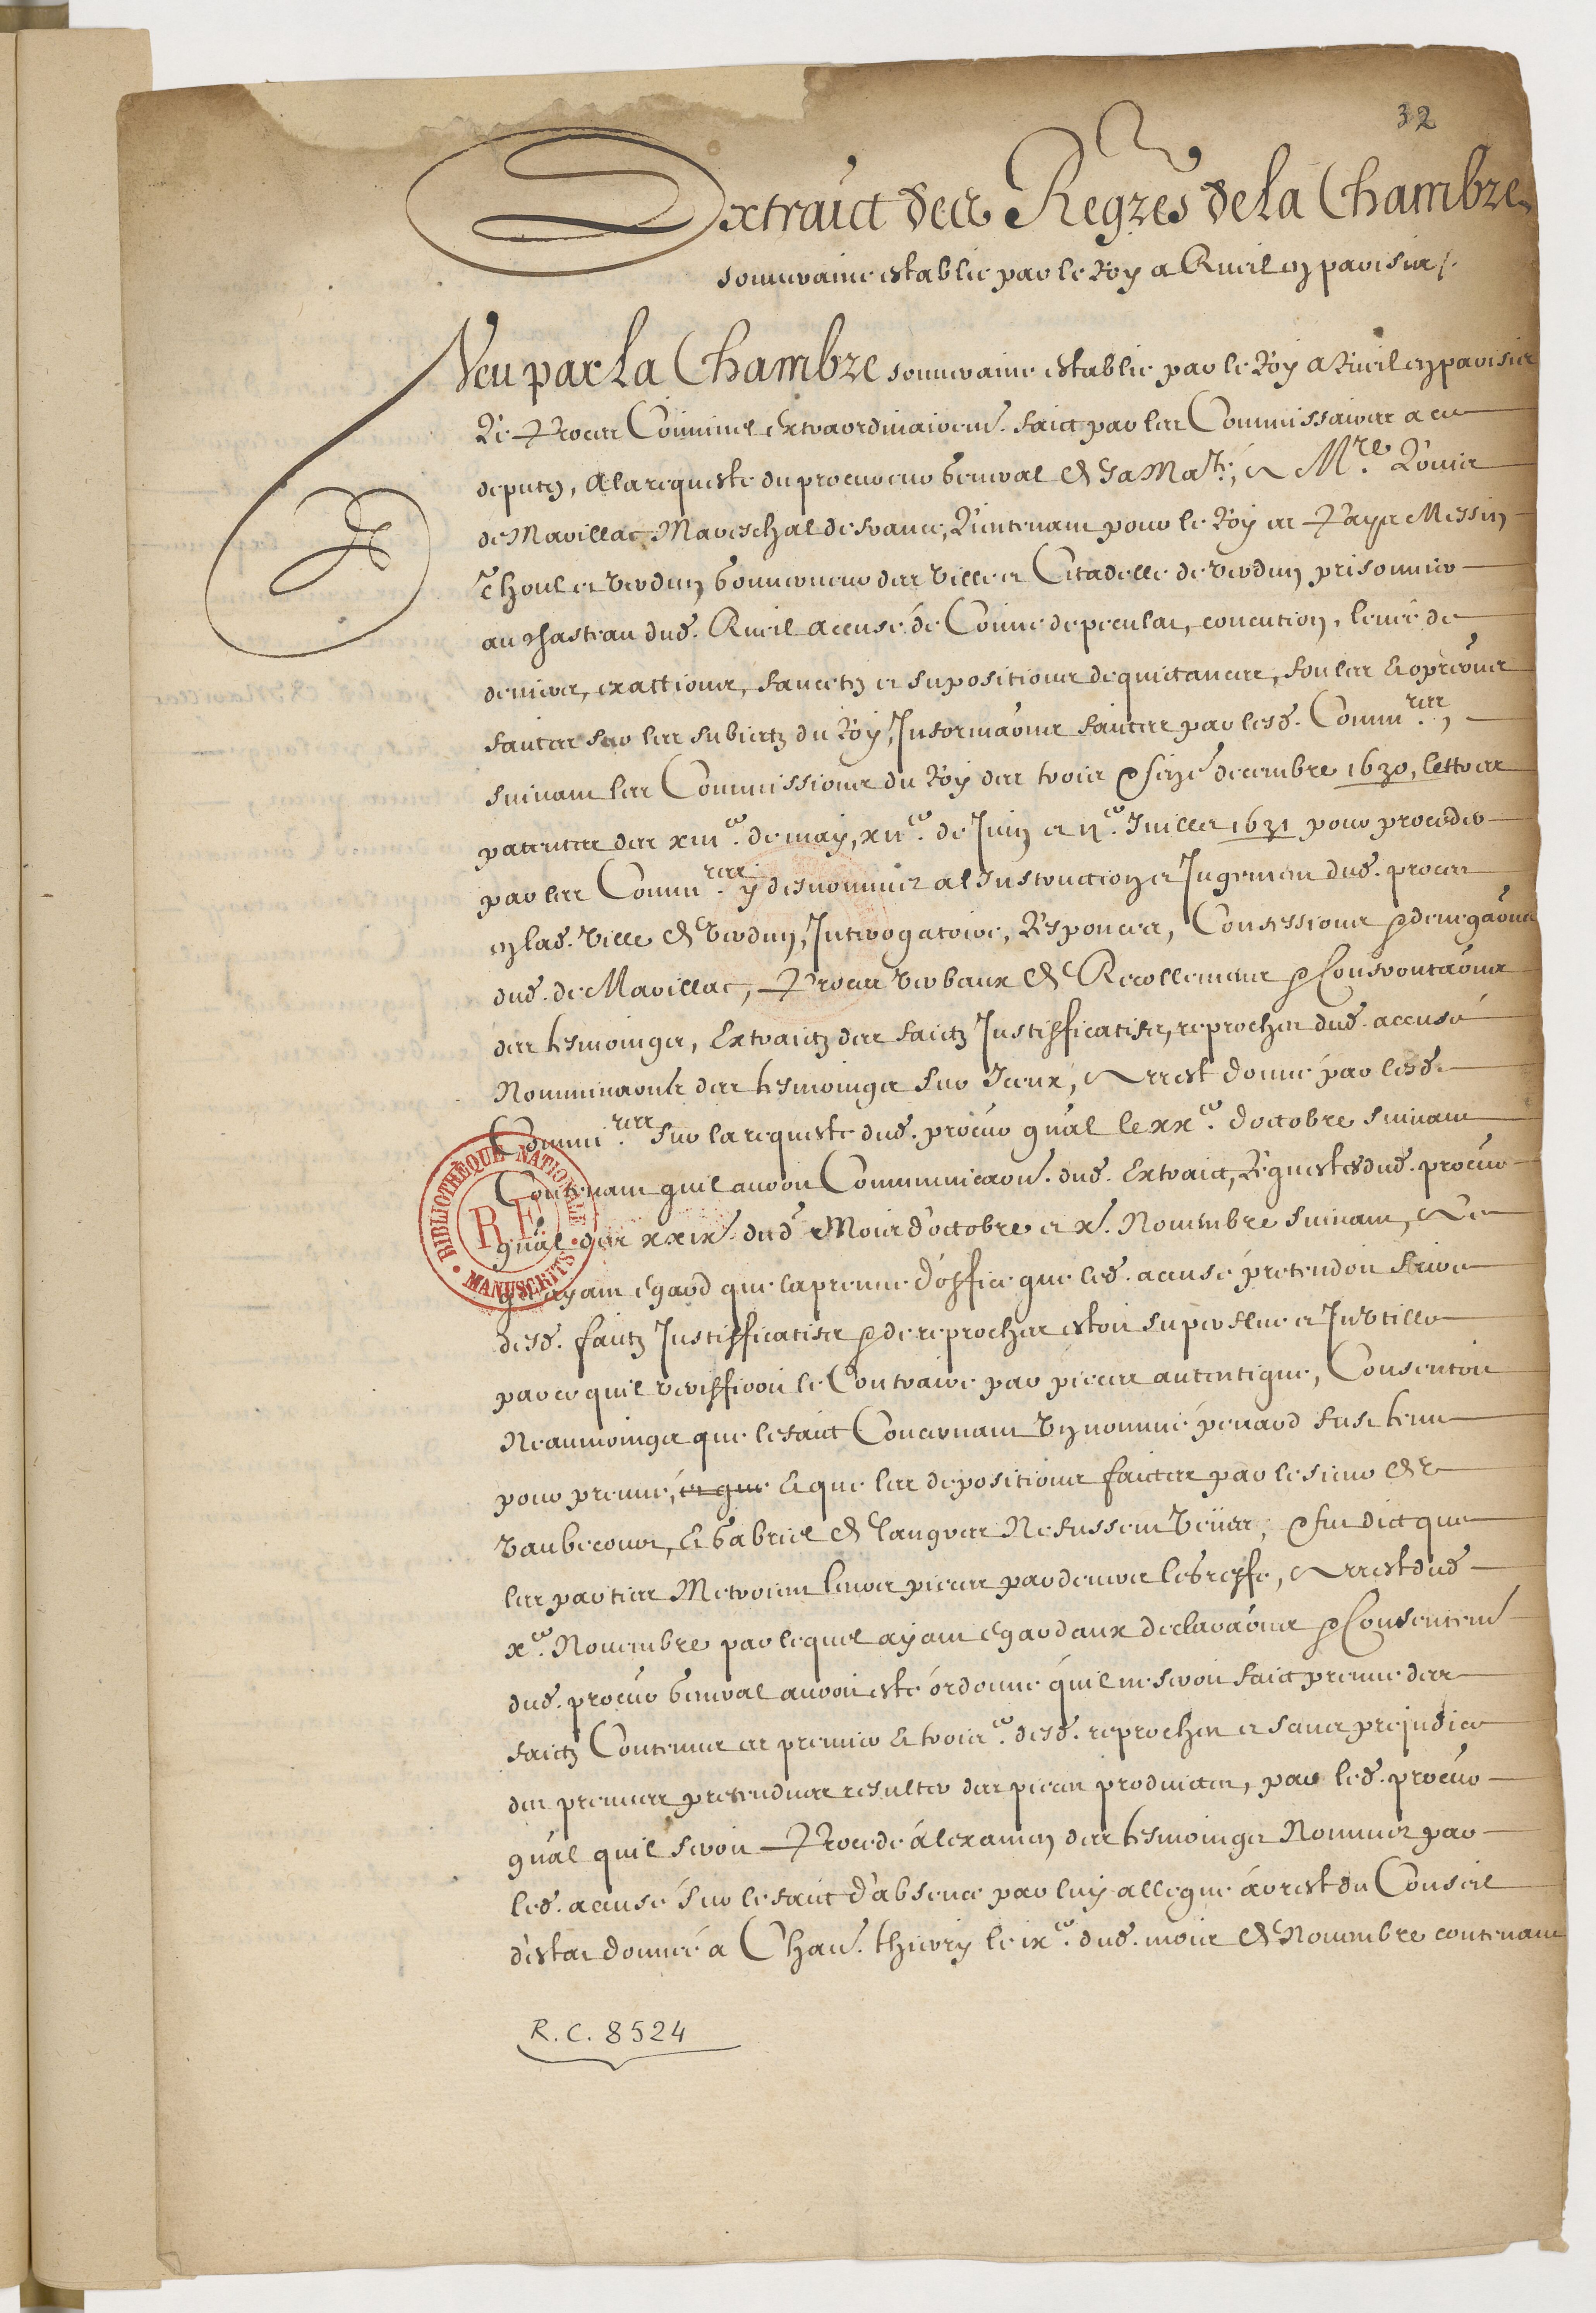 32
Extraict des Reg.res de la Chambre
souueraine establie par le Roy a Rueil en parisis /.
Veu par la Chambre souueraine establie par le Roy a Rueil en parisis
Le Proces Criminel extraordinairem.t faict par les Commissaires a ce
deputez, A la requeste du procureur general de sa Ma.té, a M.re Louis
de Marillac Mareschal de france, Lieutenant pour le Roy es Pays Messin
Thoul et Verdun, Gouuerneur des Ville et Citadelle de Verdun prisonnier
au Chasteau dud. Rueil accusé de Crime de peculat, concution, leuée de
deniers, exactions, faucetez et supositions de quictances, foulles & opre͠ons
faictes sur les subiectz du Roy, Informa͠ons faictes par lesd. Comm.res,
suiuant les Commissions du Roy des trois & seize decembre 1630, lettres
patentes des xiii.e de may, xii.e de Juin et ii.e Juillet 1631 pour proceder
par les Comm.res y desnommez a l'Instruction et Jugement dud. proces
en lad. Ville de Verdun, Interogatoire, Responces, Confessions & denega͠ons
dud. de Marillac, Proces Verbaux de Recollemens & Confronta͠ons
des tesmoings, Extraictz des faictz Justifficatifs, reproches dud. accusé
Nomina͠ons des tesmoings sur Iceux, Arrest donné par lesd.
Comm.res sur la requeste dud. procur gn͠al le xx.e d'octobre suiuant
Contenant qu'il auroit Communica͠on. dud. Extraict, Requestes dud. procur
gn͠al des xxix.e dud. Mois d'octobre et x.e Nouembre suiuant, A ce
qu'ayant egard que la preuue d'office que led. accusé pretendoit faire
desd. faictz Justifficatifs & de reproches estoit superflue et Inutille
par ce qu'il verifficroit le Contraire par pieces autentique, Consentoit
Neanmoings que le faict Concernant Un nommé penard fust tenu
pour preuué, et que & que les depositions faictes par le sieur de
Vaubecourt, & Gabriel de Langres Ne fussent Veües, & fut dict que
les parties Metroient leurs pieces par deuers le greffe, Arrest dud
x.e Nouembre par lequel ayant egard aux declara͠ons & Consentem.t
dud. procur general auroit esté ordonné qu'il ne seroit faict preuue des
faictz Contenus es premier & trois.e desd. reproches et sans prejudice
des preuues pretendues resulter des pieces produictes, par led. procur
gn͠al qu'il seroit Procedé a l'examen des tesmoings Nommez par
led. accusé sur le faict d'absence par luy allegué arrest du Conseil
d'estat donné a Chau. thierry le ix.e dud. mois de Nouembre contenant
R. C. 8524
BIBLIOTHÈQUE NATIONALE
R F
MANUSCRITS